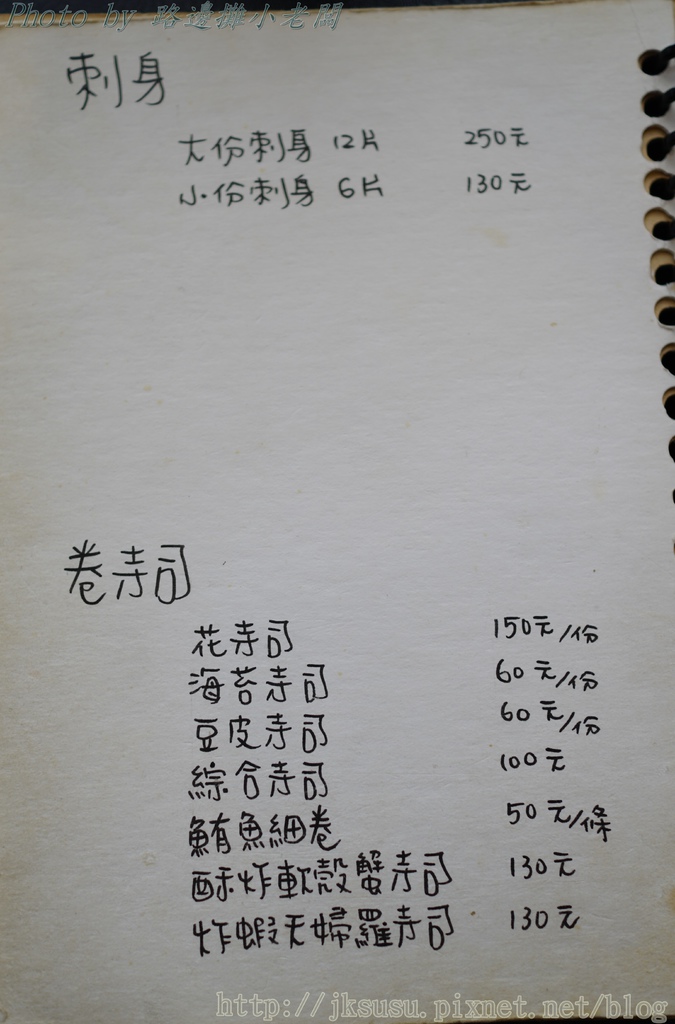 Photo by 路邊攤小老闆
刺身
大份刺身 12片 250元
小份刺身 6片 130元
卷寿司
花寿司 150元/份
海苔寿司 60元/份
豆皮寿司 60元/份
綜合寿司 100元
鮪魚細卷 50元/條
酥炸軟殼蟹寿司 130元
炸蝦天婦羅寿司 130元
http://jksusu.pixnet.net/blog